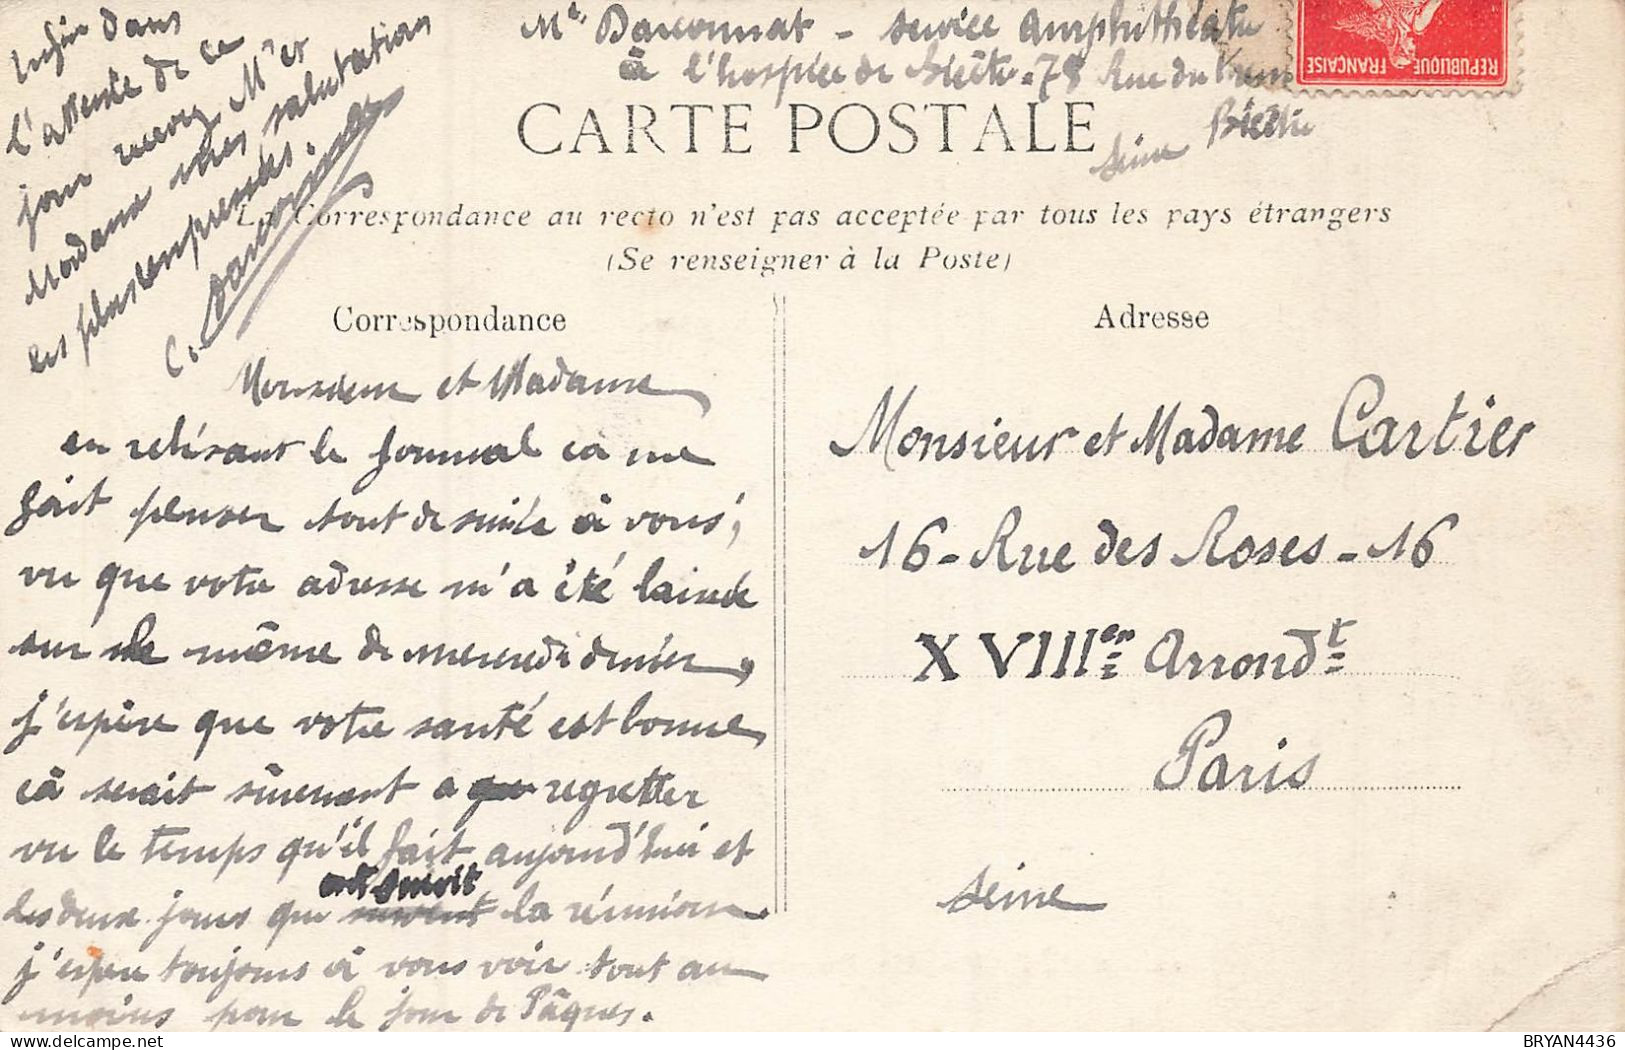 Mr Darconnat - service amphithéâtre
à l'hospice de Bicêtre - 78 Rue du
Bicêtre
Seine
REPUBLIQUE FRANÇAISE
CARTE POSTALE
La Correspondance au recto n'est pas acceptée par tous les pays étrangers
(Se renseigner à la Poste)
Correspondance
Monsieur et Madame
en relisant le journal ça me
fait penser tout de suite à vous,
vu que votre adresse m'a été laissée
sur le même de mercredi dernier,
j'espère que votre santé est bonne
çà serait sûrement a regretter
vu le temps qu'il fait aujourd'hui et
les deux jours que suivit la réunion.
j'espère toujours à vous voir tout au
moins pour le jour de Pâques.
Enfin dans
l'attente de ce
jour recevez Mr et
Madame mes salutations
les plus empressées.
C. Darconnat
Adresse
Monsieur et Madame Cartier
16 - Rue des Roses - 16
XVIIIer Arrondt
Paris
Seine
BRYAN4436